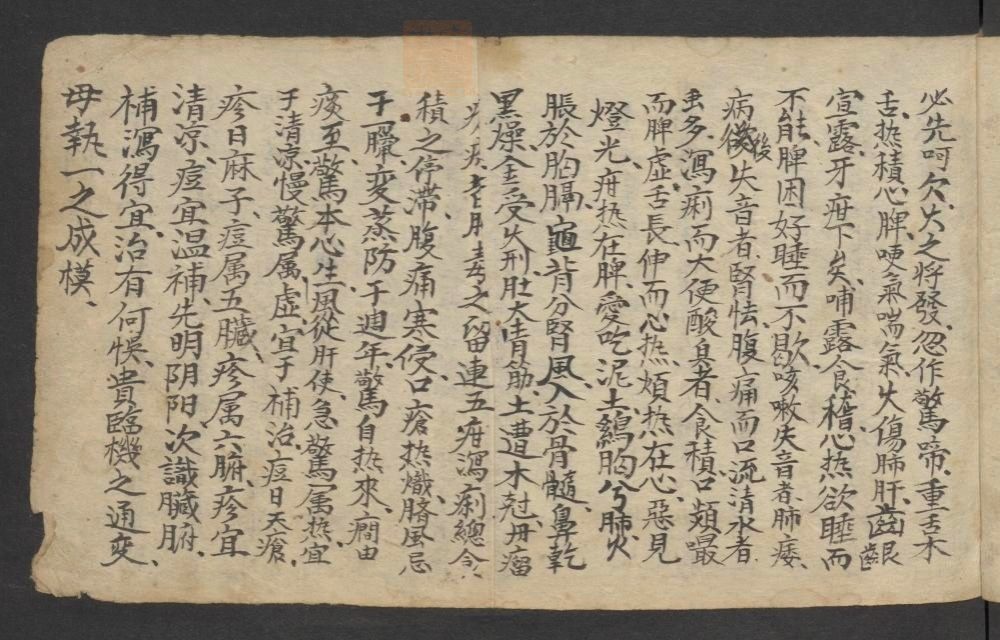 必先呵欠、火之將發、忽作驚啼、重舌木
舌、热積心脾、哽氣喘氣、火傷肺肝、齒齦
宣露、牙疳下矣、哺露食積、心热欲睡而
不能、脾困好睡而不歇、咳嗽失音者、肺痿、
病後失音者、腎怯、腹痛而口流清水者
虫多、瀉痢而大便酸臭者、食積、口頻嘬
而脾虛、舌長伸而心热、煩热在心、惡見
燈光、疳热在脾、愛吃泥土、鷄胸兮肺火
脹於胸膈、龜背分腎風入於骨髓、鼻乾
黑燥金受火刑、肚大青筋、土遭木尅、丹瘤
毒之留連、五疳瀉痢總
積之停滯、腹痛寒侵、口瘡热熾、臍風忌
于一臘、变蒸防于週年、驚自热來、癎由
痰至、驚本心生、風從肝使、急驚属热、宜
于清凉、慢驚属虚、宜于補治、痘曰天瘡、
疹曰麻子、痘属五臟、疹属六腑、疹宜
清凉、痘宜温補、先明阴阳、次識臟腑、
補瀉得宜、治有何悞、貴臨機之通变、
毋執一之成模、